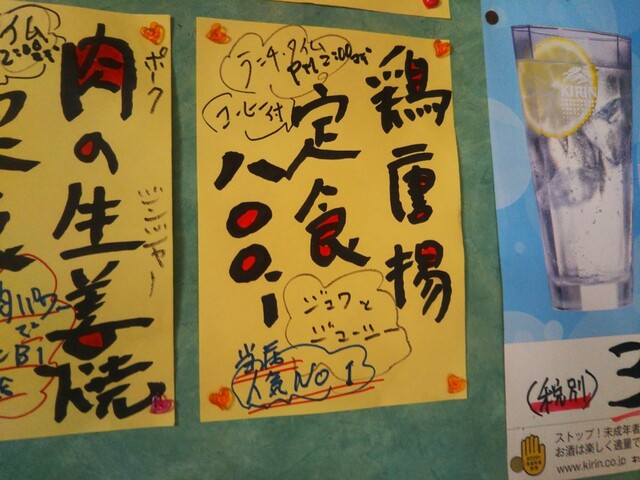 鶏唐揚
定食
八〇〇円
ランチ・タイム
PM2:00まで
コーヒー付
ジュワっと
ジューシー
当店
人気No1
肉の生姜焼
ポーク
ジンジャー
イム
2:00まで
KIRIN
(税別)
ストップ!未成年者
お酒は楽しく適量で
www.kirin.co.jp